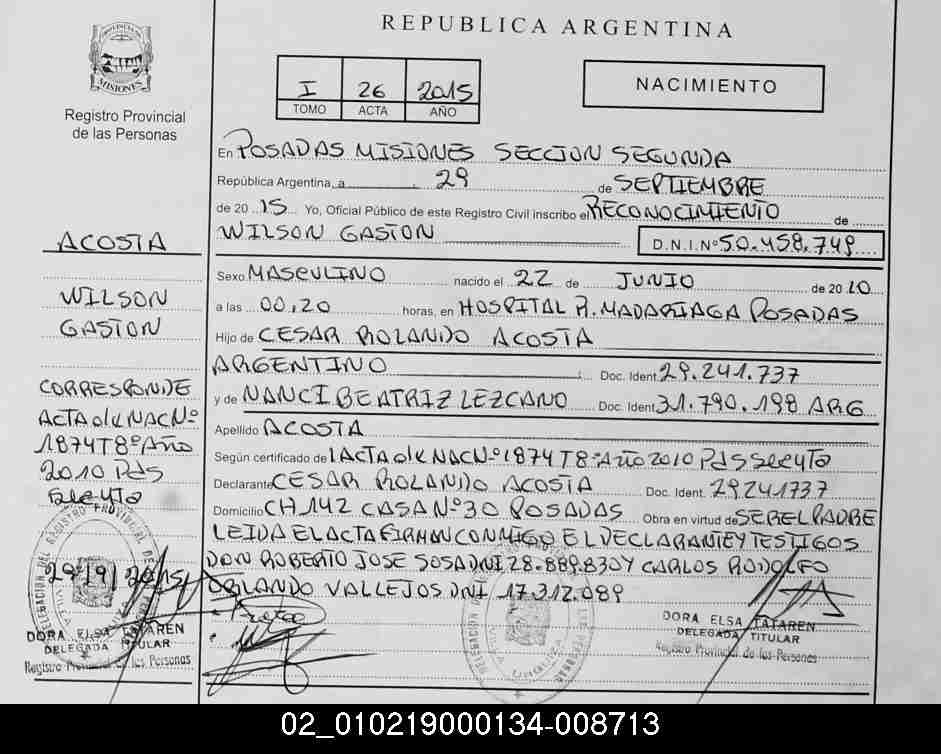 REPUBLICA ARGENTINA
PROVINCIA DE
MISIONES
Registro Provincial
de las Personas
I 26 2015
TOMO ACTA AÑO
NACIMIENTO
En POSADAS MISIONES SECCION SEGUNDA
República Argentina, a 29 de SEPTIEMBRE
de 2015 Yo, Oficial Público de este Registro Civil inscribo el RECONOCIMIENTO de
WILSON GASTON D.N.I.Nº 50.458.749
Sexo MASCULINO nacido el 22 de JUNIO de 2010
a las 00,20 horas, en HOSPITAL R. MADARIAGA POSADAS
Hijo de CESAR ROLANDO ACOSTA
ARGENTINO Doc. Ident. 29.241.737
y de NANCI BEATRIZ LEZCANO Doc. Ident. 31.790.198 ARG
Apellido ACOSTA
Según certificado de ACTA NAC Nº 1874 T8º AÑO 2010 Pds
Declarante CESAR ROLANDO ACOSTA Doc. Ident. 29241737
Domicilio CH 142 CASA Nº 30 POSADAS Obra en virtud de SER EL PADRE
LEIDA EL ACTA FIRMAN CONMIGO EL DECLARANTE Y TESTIGOS
DON ROBERTO JOSE SOSA DNI 28.889.830 Y CARLOS RODOLFO
ORLANDO VALLEJOS DNI 17.312.089
ACOSTA
WILSON
GASTON
CORRESPONDE
ACTA NAC Nº
1874 T8º Año
2010 Pds
29/9/2015
DORA ELSA TATAREN
DELEGADA TITULAR
Registro Provincial de las Personas
DORA ELSA TATAREN
DELEGADA TITULAR
Registro Provincial de las Personas
02_010219000134-008713